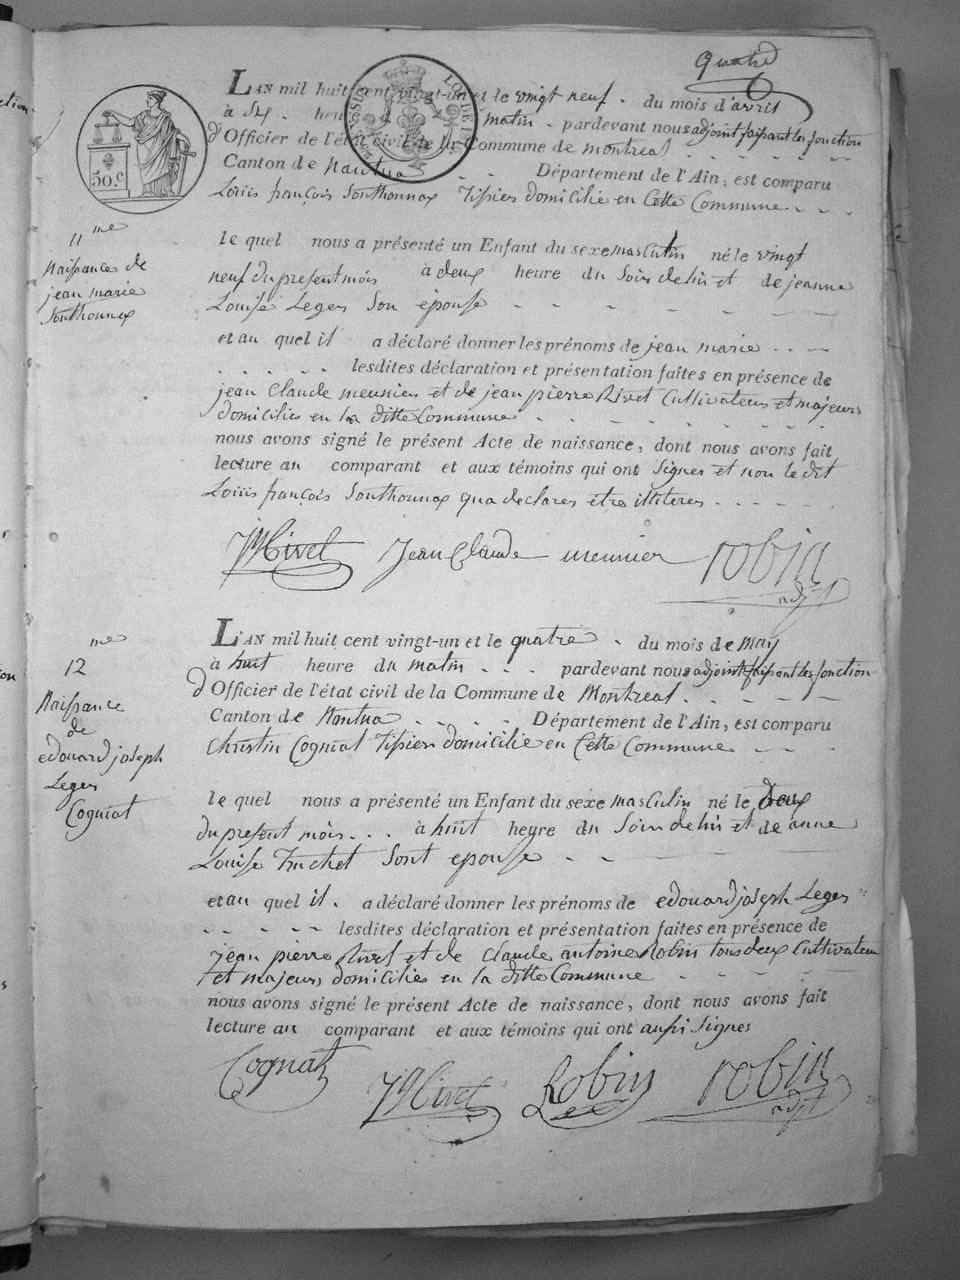 quatre
L'AN mil huit cent vingt-un et le vingt neuf. du mois d'avril
à six. heure du matin - pardevant nous adjoint faisant les fonction
d'Officier de l'état civil de la Commune de montreal
Canton de Nantua Département de l'Ain, est comparu
Louis françois Southonnax Tissier domicilié en Cette Commune
50.c
11me
Naissances de
jean marie
Southonnax
le quel nous a présenté un Enfant du sexe masculin né le vingt
neuf du present mois à deux heure du Soir de lui et de jeanne
Louise Leger Son épouse
et au quel il a déclaré donner les prénoms de jean marie
lesdites déclaration et présentation faites en présence de
jean Claude meunier et de jean pierre Rivet Cultivateurs et majeurs
domicilies en la ditte Commune
nous avons signé le présent Acte de naissance, dont nous avons fait
lecture au comparant et aux témoins qui ont Signes et non le dit
Louis françois Southonnax qua declares etre illiteres
JPRivet Jean Claude meunier robin
adjt
12me
Naissance
de
edouard joseph
Leger
Cogniat
L'AN mil huit cent vingt-un et le quatre du mois de May
à huit heure du matin pardevant nous adjoint faisant les fonction
d'Officier de l'état civil de la Commune de Montreal
Canton de Nantua Département de l'Ain, est comparu
Christin Cogniat Tissier domicilié en Cette Commune
le quel nous a présenté un Enfant du sexe masculin né le deux
du present mois à huit heure du Soir de lui et de anne
Louise huchet Sont epouse
et au quel il. a déclaré donner les prénoms de edouard joseph Leger
lesdites déclaration et présentation faites en présence de
jean pierre Rivet et de claude antoine Robin tous deux Cultivateur
et majeurs domicilies en la ditte Commune
nous avons signé le présent Acte de naissance, dont nous avons fait
lecture au comparant et aux témoins qui ont aussi Signes
Cogniat JPRivet Robin robin
adjt